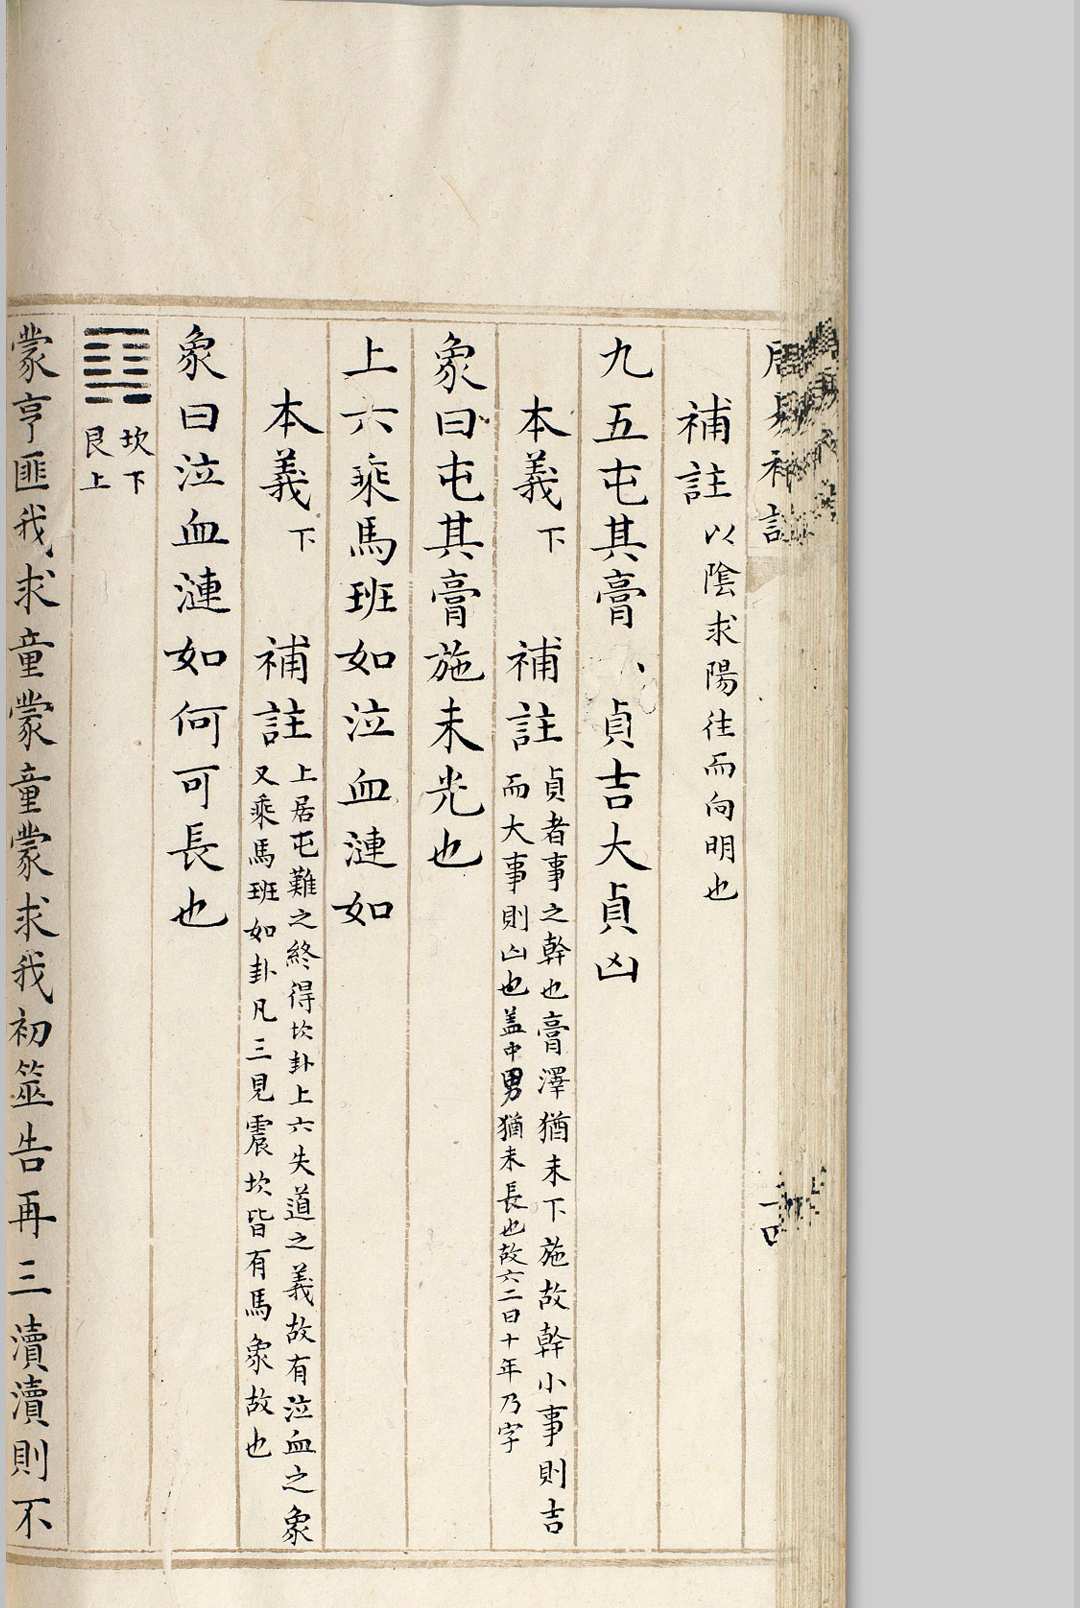 周易補註
補註以陰求陽往而向明也
九五屯其膏小貞吉大貞凶
本義下　補註貞者事之幹也膏澤猶未下施故幹小事則吉
而大事則凶也盖中男猶未長也故六二曰十年乃字
象曰屯其膏施未光也
上六乘馬班如泣血漣如
本義下　補註上居屯難之終得坎卦上六失道之義故有泣血之象
又乘馬班如卦凡三見震坎皆有馬象故也
象曰泣血漣如何可長也
䷃坎下
艮上
蒙亨匪我求童蒙童蒙求我初筮告再三瀆瀆則不